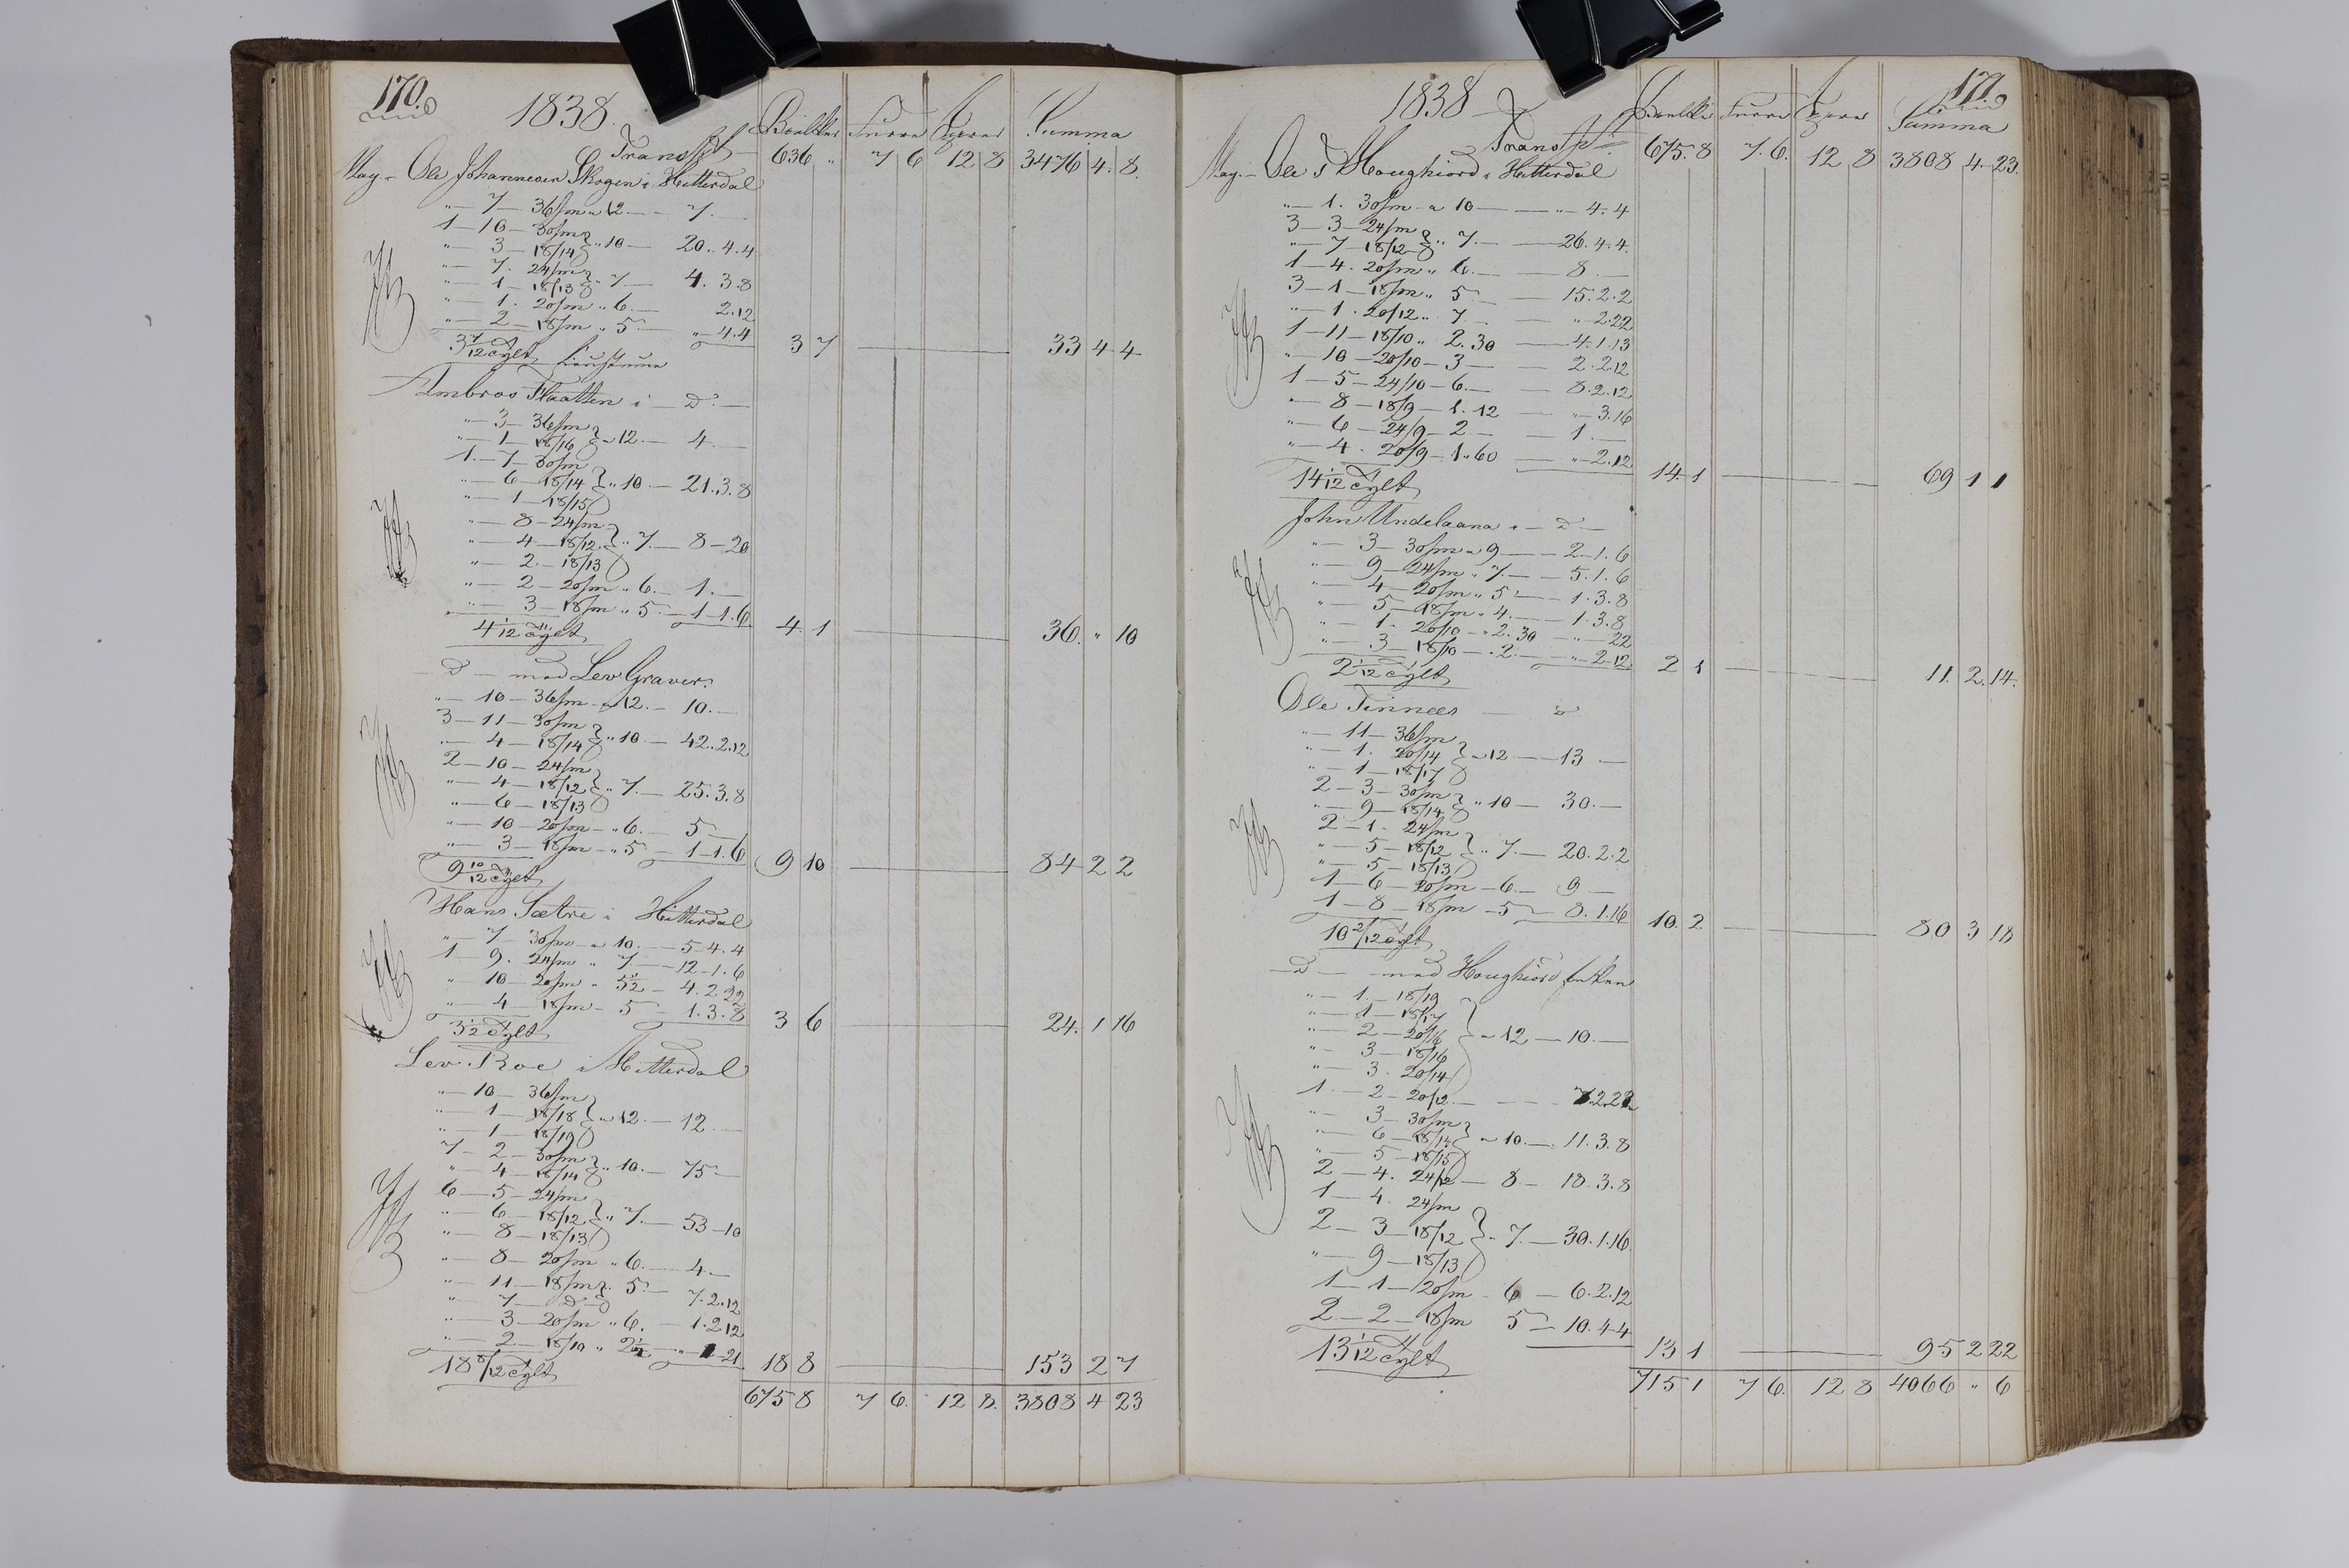 170.
1838. Bielker Furre Summa
Transpt 636 " 7 6 12 8 3476 4. 8.
May - Ole Johannesen Skogen i Hitterdal
"— 7— 36/m a 12 — 7. —
1—10— 30/m } " 10 — 20. 4. 4
"— 3— 18/14
"— 7. 24/m } " 7— 4. 3. 8
"— 1— 18/13
"— 1. 20/m " 6. — 2. 12
"— 2— 18/m " 5 — "—4. 4
3 7/12 Tylt 3 7 33 4 4
Ambros Flaatten i — D°. —
"— 3— 36/m } a 12. — 4. —
"— 1— 18/16
1.—7— 30/m
"— 6— 18/14 } " 10 — 21. 3. 8
"— 1— 18/15
"— 8— 24/m
"— 4— 18/12 } " 7. — 8—20
"— 2— 18/13
"— 2— 20/m " 6. — 1. —
"— 3— 18/m " 5 — 1—1. 6.
4 1/12 Tylt 4. 1 36. " 10
D° — med Lev Graver.
"— 10— 36/m — a 12. — 10. —
3—11— 30/m } " 10 — 42. 2. 12
"— 4— 18/14
2—10— 24/m
"— 4— 18/12 } " 7. — 25. 3. 8
"— 6— 18/13
"— 10— 20/m — " 6. — 5 —
"— 3— 18/m — " 5 — 1—1. 6
9 10/12 Tylt 9 10 84 2 2
Hans Sætre i Hitterdal
"— 7— 30/m — a 10. — 5. 4. 4
1— 9. 24/m " 7— 12—1. 6
"— 10— 20/m " 5½ — 4. 2 22
"— 4— 18/m — 5 — 1. 3. 8
3 1/2 Tylt 3 6 24. 1 16
Lev Roe i Hitterdal
"— 10— 36/m
"— 1— 18/18 } a 12. — 12 —
"— 1— 18/19
7— 2— 30/m } " 10. — 75 —
"— 4— 18/14
6— 5— 24/m
"— 6— 18/12 } " 7. — 53—10
"— 8— 18/13
"— 8— 20/m " 6. — 4. —
"— 11— 18/m } 5 — 7. 2. 12
"— 7— D°
"— 3— 20/m " 6. — 1. 2 12
"— 2— 18/10 " 2½ — 21
18 8/12 Tylt 18 8 153 2 7
675 8 7 6. 12 8. 3808 4 23
171.
1838 Bielker Furre Summa
Transpt 675. 8 7. 6. 12 8 3808 4—23.
May. — Ole T Houghiord i Hitterdal
"— 1. 30/m — a 10 — "— 4. 4
3— 3— 24/m } " 7. — 26. 4. 4.
"— 7— 18/12
1— 4. 20/m " 6. — 8. —
3— 1— 18/m " 5 — 15. 2. 2
"— 1. 20/12 " 7. — "— 2. 22
1—11— 18/10 " 2. 30 — 4. 1. 13
"— 10— 20/10 — 3 — 2. 2. 12
1— 5— 24/10 — 6. — 8. 2. 12
"— 8— 18/9 — 1. 12 — "— 3. 16
"— 6— 24/9 — 2. — 1. —
"— 4. 20/9 — 1. 60 — "— 2. 12
14 1/12 Tylt 14. 1 69 1 1
John Undelaana i — D° —
"— 3— 30/m a 9 — 2—1. 6
"— 9— 24/m " 7. — 5. 1. 6
"— 4— 20/m " 5 — 1. 3. 8
"— 5— 18/m " 4. — 1. 3. 8
"— 1. 20/10 — " 2. 30 — "— 22
"— 3— 18/10 — " 2. — "— 2—12
2 1/12 Tylt 2 1 11. 2. 14.
Ole Tinnees — D°
"— 11— 36/m
"— 1. 20/14 } a 12 — 13 —
"— 1— 18/17
2— 3— 30/m } " 10 — 30. —
"— 9— 18/14
2— 1. 24/m
"— 5— 18/12 } " 7. — 20. 2. 2
"— 5— 18/13
1— 6— 20/m — 6. — 9 —
1— 8— 18/m — 5 — 8. 1. 16
10 2/12 Tylt 10. 2 80 3 18
D° — med Houghiord
"— 1. — 18/19
"— 1— 18/17
"— 2— 20/16 } a 12 — 10. —
"— 3— 18/16
"— 3. 20/14
1.— 2— 20/12 — 2. 22
"— 3— 30/m
"— 6— 18/14 } a 10. — 11. 3. 8
"— 5— 18/15
2— 4. 24/12 — 8 — 18. 3. 8
1— 4. 24/m
2— 3— 18/12 } " 7. — 30. 1. 16.
"— 9— 18/13
1— 1— 20/m — 6 — 6. 2. 12
2— 2— 18/m 5 — 10. 4 4
13 1/12 Tylt 13 1 95 2 22
715 1 7 6. 12 8 4066 " 6